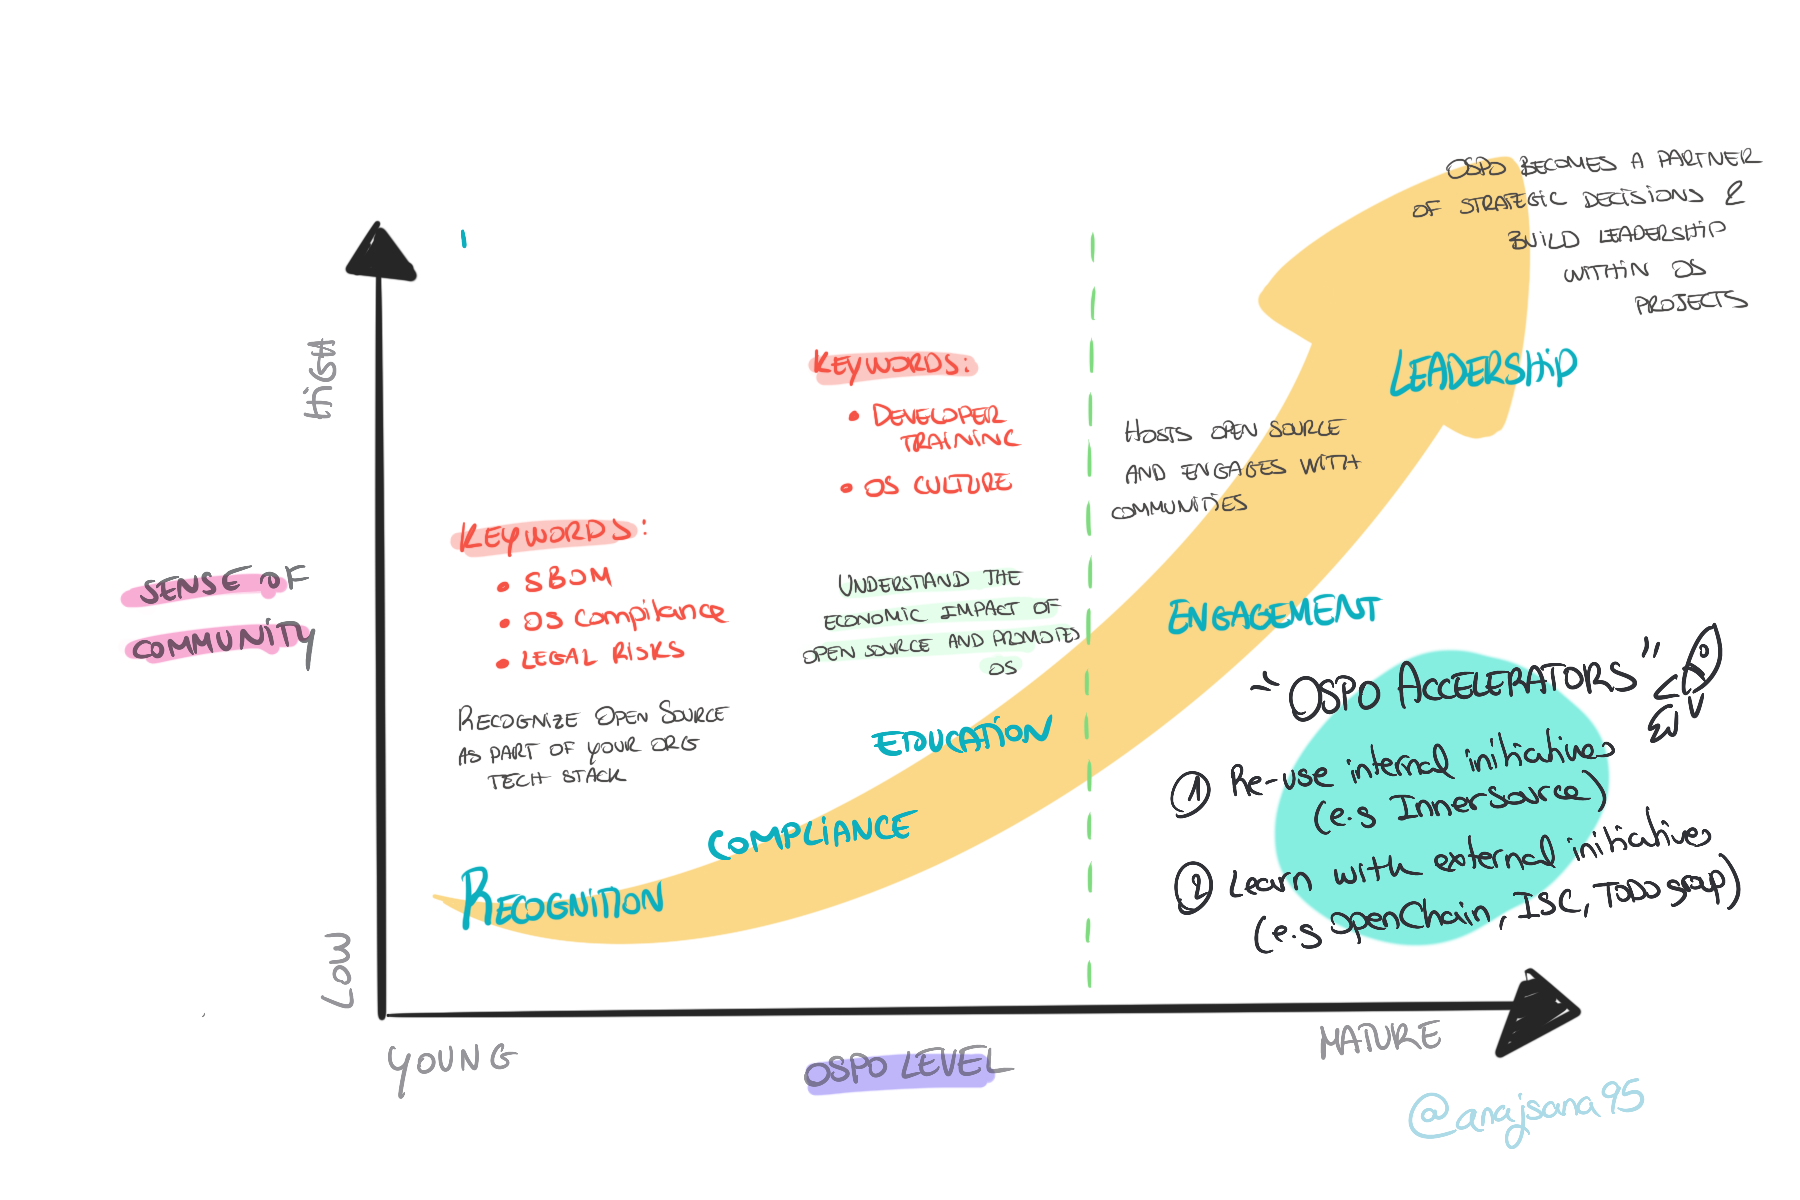 OSPO BECOMES A PARTNER
OF STRATEGIC DECISIONS &
BUILD LEADERSHIP
WITHIN OS
PROJECTS
HIGH
KEYWORDS:
• DEVELOPER
TRAINING
• OS CULTURE
LEADERSHIP
HOSTS OPEN SOURCE
AND ENGAGES WITH
COMMUNITIES
KEYWORDS:
• SBOM
• OS Compilance
• LEGAL RISKS
SENSE OF
COMMUNITY
UNDERSTAND THE
ECONOMIC IMPACT OF
OPEN SOURCE AND PROMOTES
OS
ENGAGEMENT
RECOGNIZE OPEN SOURCE
AS PART OF YOUR ORG
TECH STACK
EDUCATION
"OSPO ACCELERATORS"
① Re-use internal initiatives
(e.s InnerSource)
② Learn with external initiatives
(e.s openChain, ISC, TODO group)
COMPLIANCE
RECOGNITION
LOW
YOUNG
OSPO LEVEL
MATURE
@anajsana95